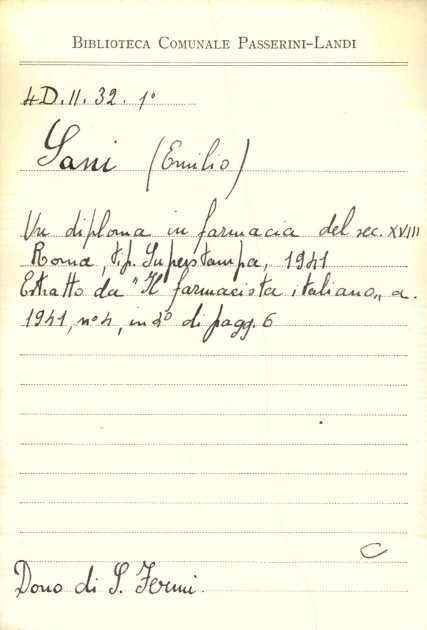 BIBLIOTECA COMUNALE PASSERINI-LANDI
4D.II.32.1°
Sani (Emilio)
Un diploma in farmacia del sec. XVIII
Roma, tip. Superstampa, 1941
Estratto da "Il farmacista italiano„ a.
1941, n° 4, in 2° di pagg. 6
C
Dono di S. Fermi.